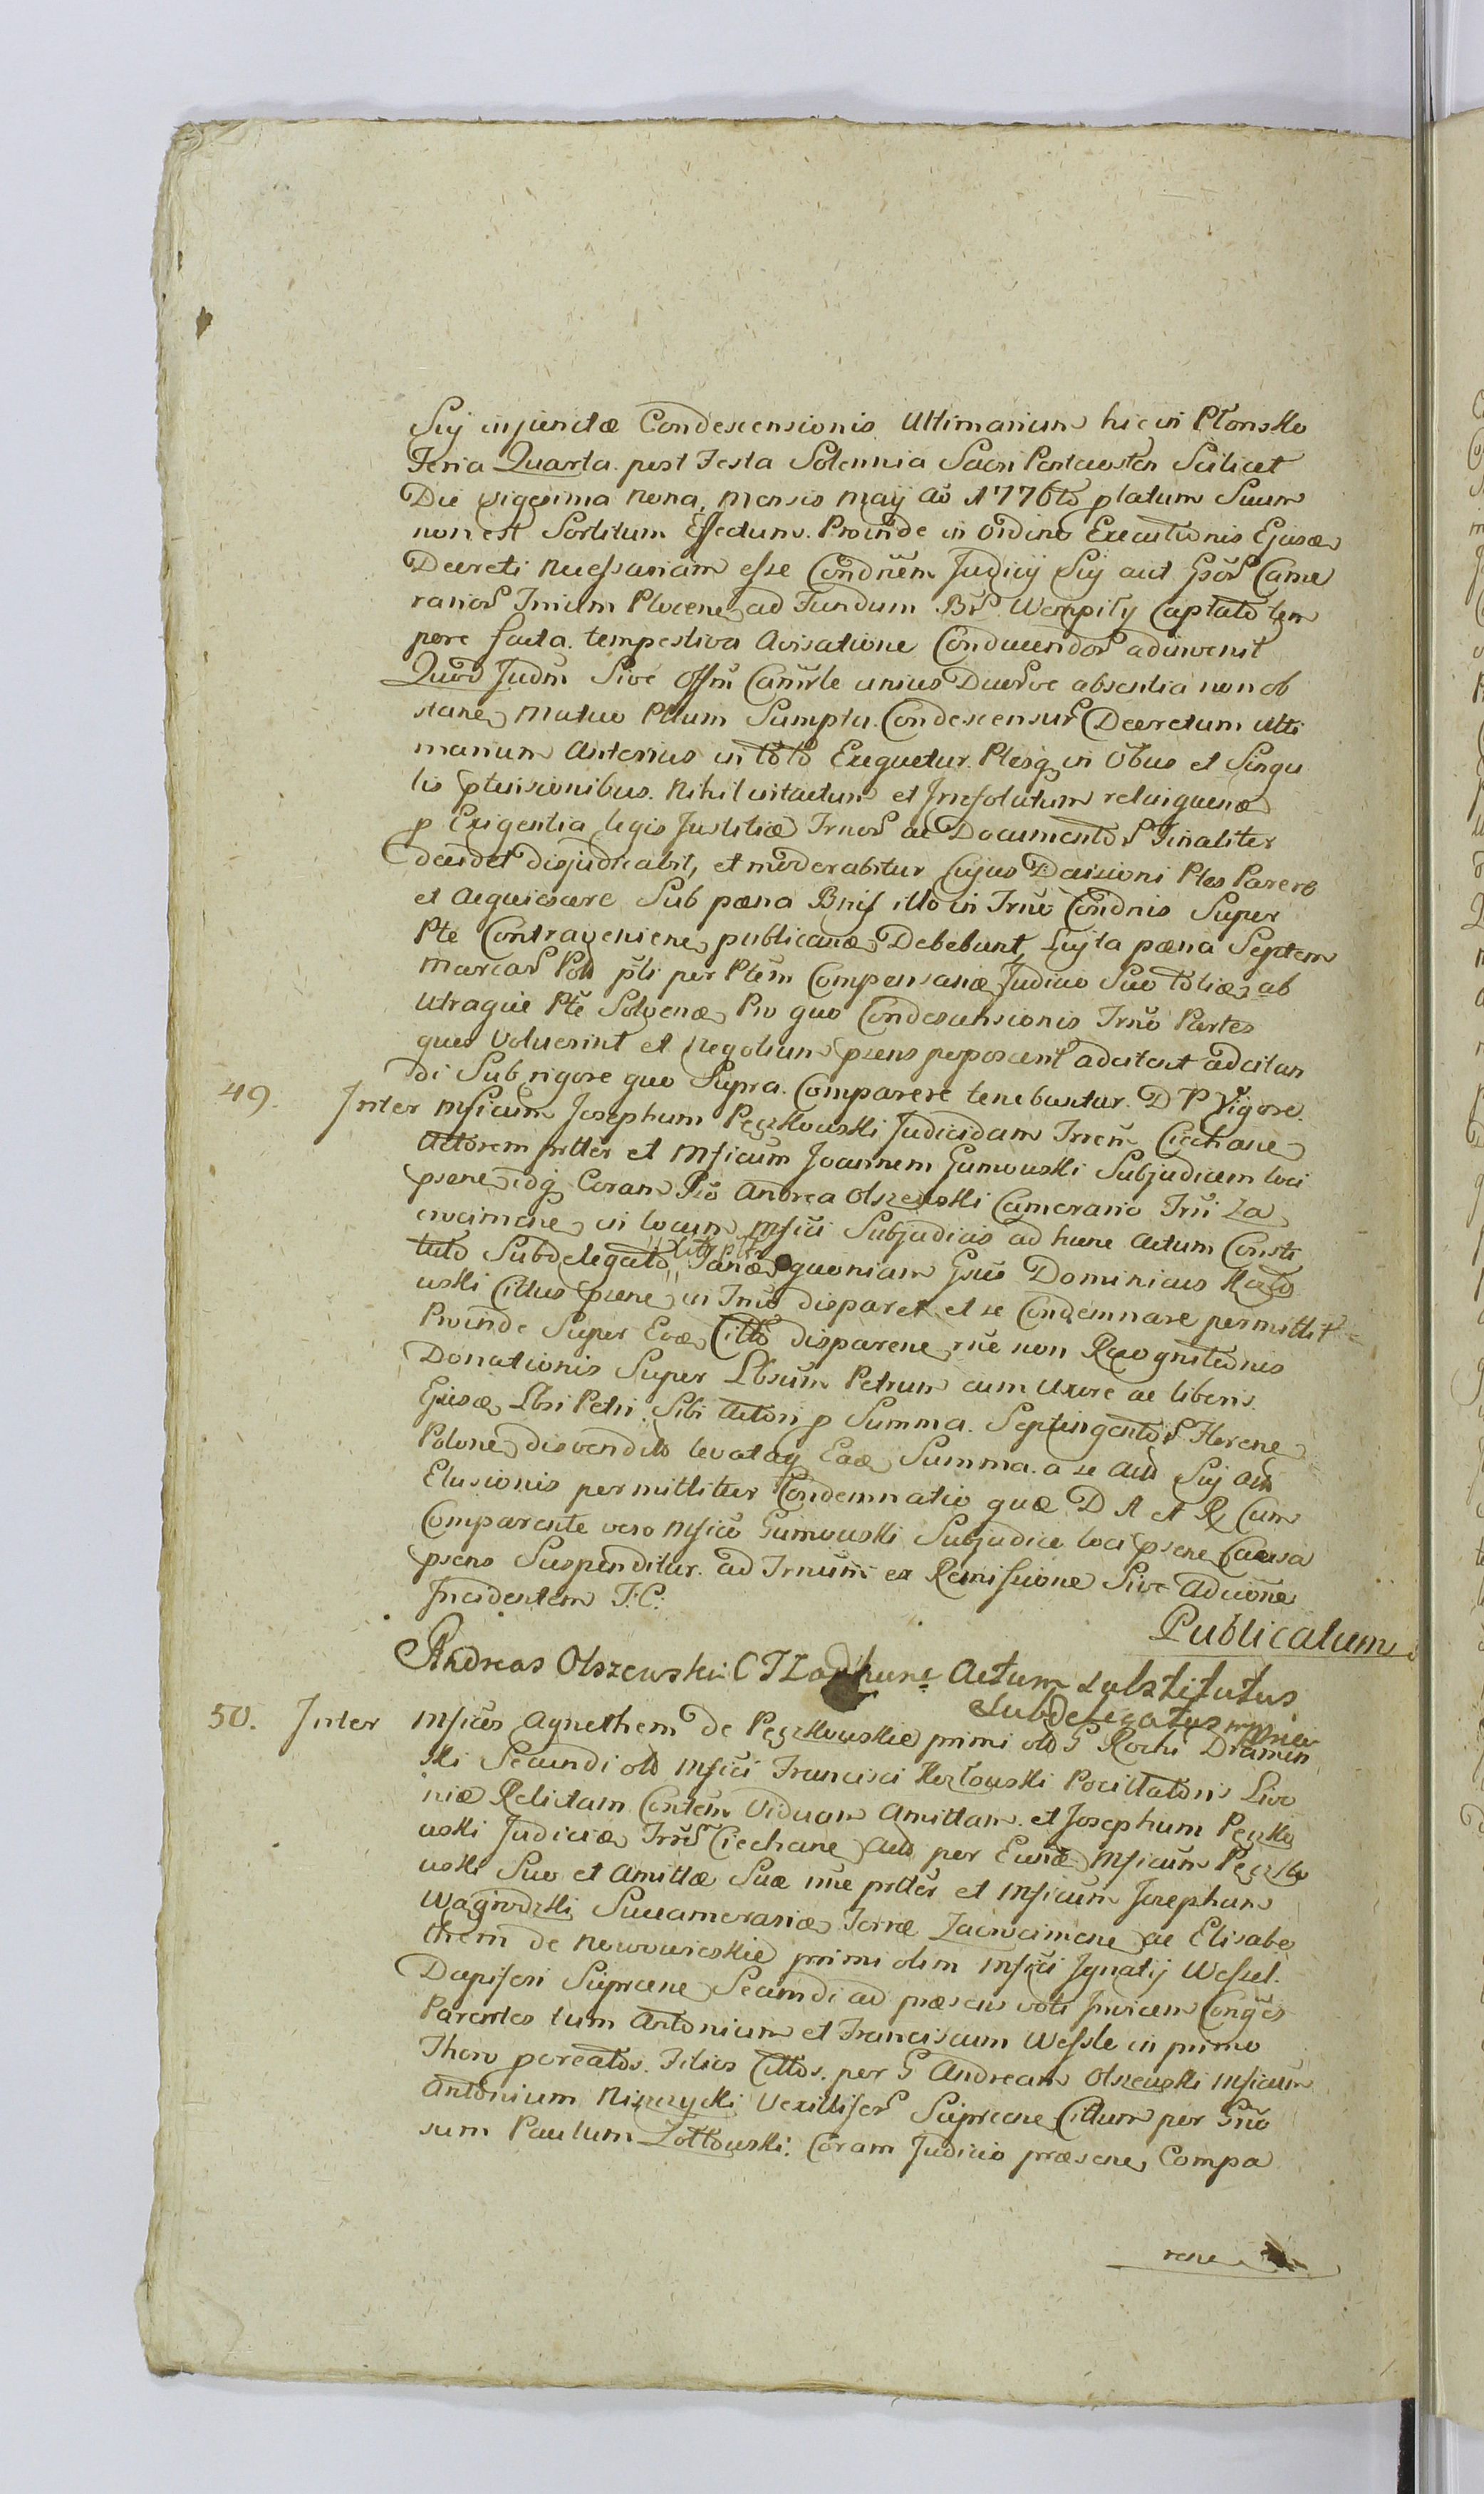 Sụj injunctæ Condescensionis Ultimarium hic in Płonsko
Feria Quarta post Festa Solennia Sacri Pentecosten Scilicet
Die vigesima nona, mensis Maij aõ 1776to platum Suum
non est Sortitum Effectum. Proinde in ordine Executionis Ejusdæ
Decreti necessariam esse Condnem Judicij Sụj aut Gsor Came
rarior Trium Plocene ad Fundum Br Wempiły Captato tem
pore facta tempestiva avisatione Conducendor adinvenit
Quod Judm Sive Offm Camrle unius Duorve absentia non ob
stane, Mutuo Ptium Sumptu Condescensur Decretum ulti
marium Anterius in toto Exequetur. Ptesq in obus et Singu
lis ptensionibus. Nihil intactum et Irresolutum relinquenæ
p Exigentia legis Justitiæ Irnor ac Documentor Finaliter
decidet disjudicabit, et moderabitur Cujus Decisioni Ptes Parere
et acquiescere Sub pæna Bnis illo in Trno Condnis Super
Pte Contraveniene, publicanæ Debebunt, Luị̣ta pæna Septem
Marcar Poll pti per Ptem Compensanæ Judicio Suo toties ab
utraque Pte Solvenæ, Pro quo Condescensionis Trno Partes
quas voluerint et Negotium psens poposcerit adcitent adcitan
di Sub rigore quo Supra. Comparere tenebuntur. D P Vigore.
49. Inter Mficum Josephum Pęczkowski Judicidam Trrem Ciechane
Actorem prtter et Mficum Joannem Gumowski Subjudicem loci
psene idq Coram Gso Andrea Olszewski Camerario Trii Za
wcimene, in locum Mfici Subjudicis ad hunc actum Consti
tuto Subdelegato, Partes quoniam Gsus Dominicus Rado
wski Cittus psene in Trno disparet et se Condemnare permittit
Proinde Super Eodæ Citto disparene, rne non Recognitionis
Donationis Super Lbsum Petrum cum Uxore ac liberis
Ejusdæ Lbsi Petri Sibi Actori p Summa Septingentor Florene
Polone, disvendito levataq Eadæ Summa a se Actō Sụj aũ
Elusionis permittitur Condemnatio quæ D A et R Cum
Comparente vero Mfico Gumowski Subjudice loci psene Causa
psens Suspenditur ad Trnum ex Remissione Sive Adcione
Incidentem J: C:
Publicatum
Andreas Olszewski C T Z ad hunc Actum substitutus
Subdelegatus mpria
50. Inter Mficos Agnethem de Pęczkowskie primi olo G Rochi Dramin
ski Secundi olo Mfici Francisci Kozłowski Pocillatoris Livo
niæ Relictam Contem Viduam Amittam et Josephum Pęczko
wski Judiciæ Trrs Ciechane Acto per Eundæ Mficum Pęczko
wski Suo et Amittæ Suæ nne prtter et Mficum Josephum
Wagrodzki Succameraniæ Terræ Zacwcimene ac Elisabe
them de Nowowieskie primi olim Mfici Ignatij Wessel
Dapiferi Sieprcene Secundi ad præsens voti Invicem Conges
Parentes tum Antonium et Franciscum Wessle in primo
Thoro pcreatos Filios Cittos per G Andream Olszewski Mficum
Antonium Niszczycki Vexillifer Sieprcene Cittum per Gno
sum Paulum Żołtowski. Coram Judicio præsene, Compa
rene